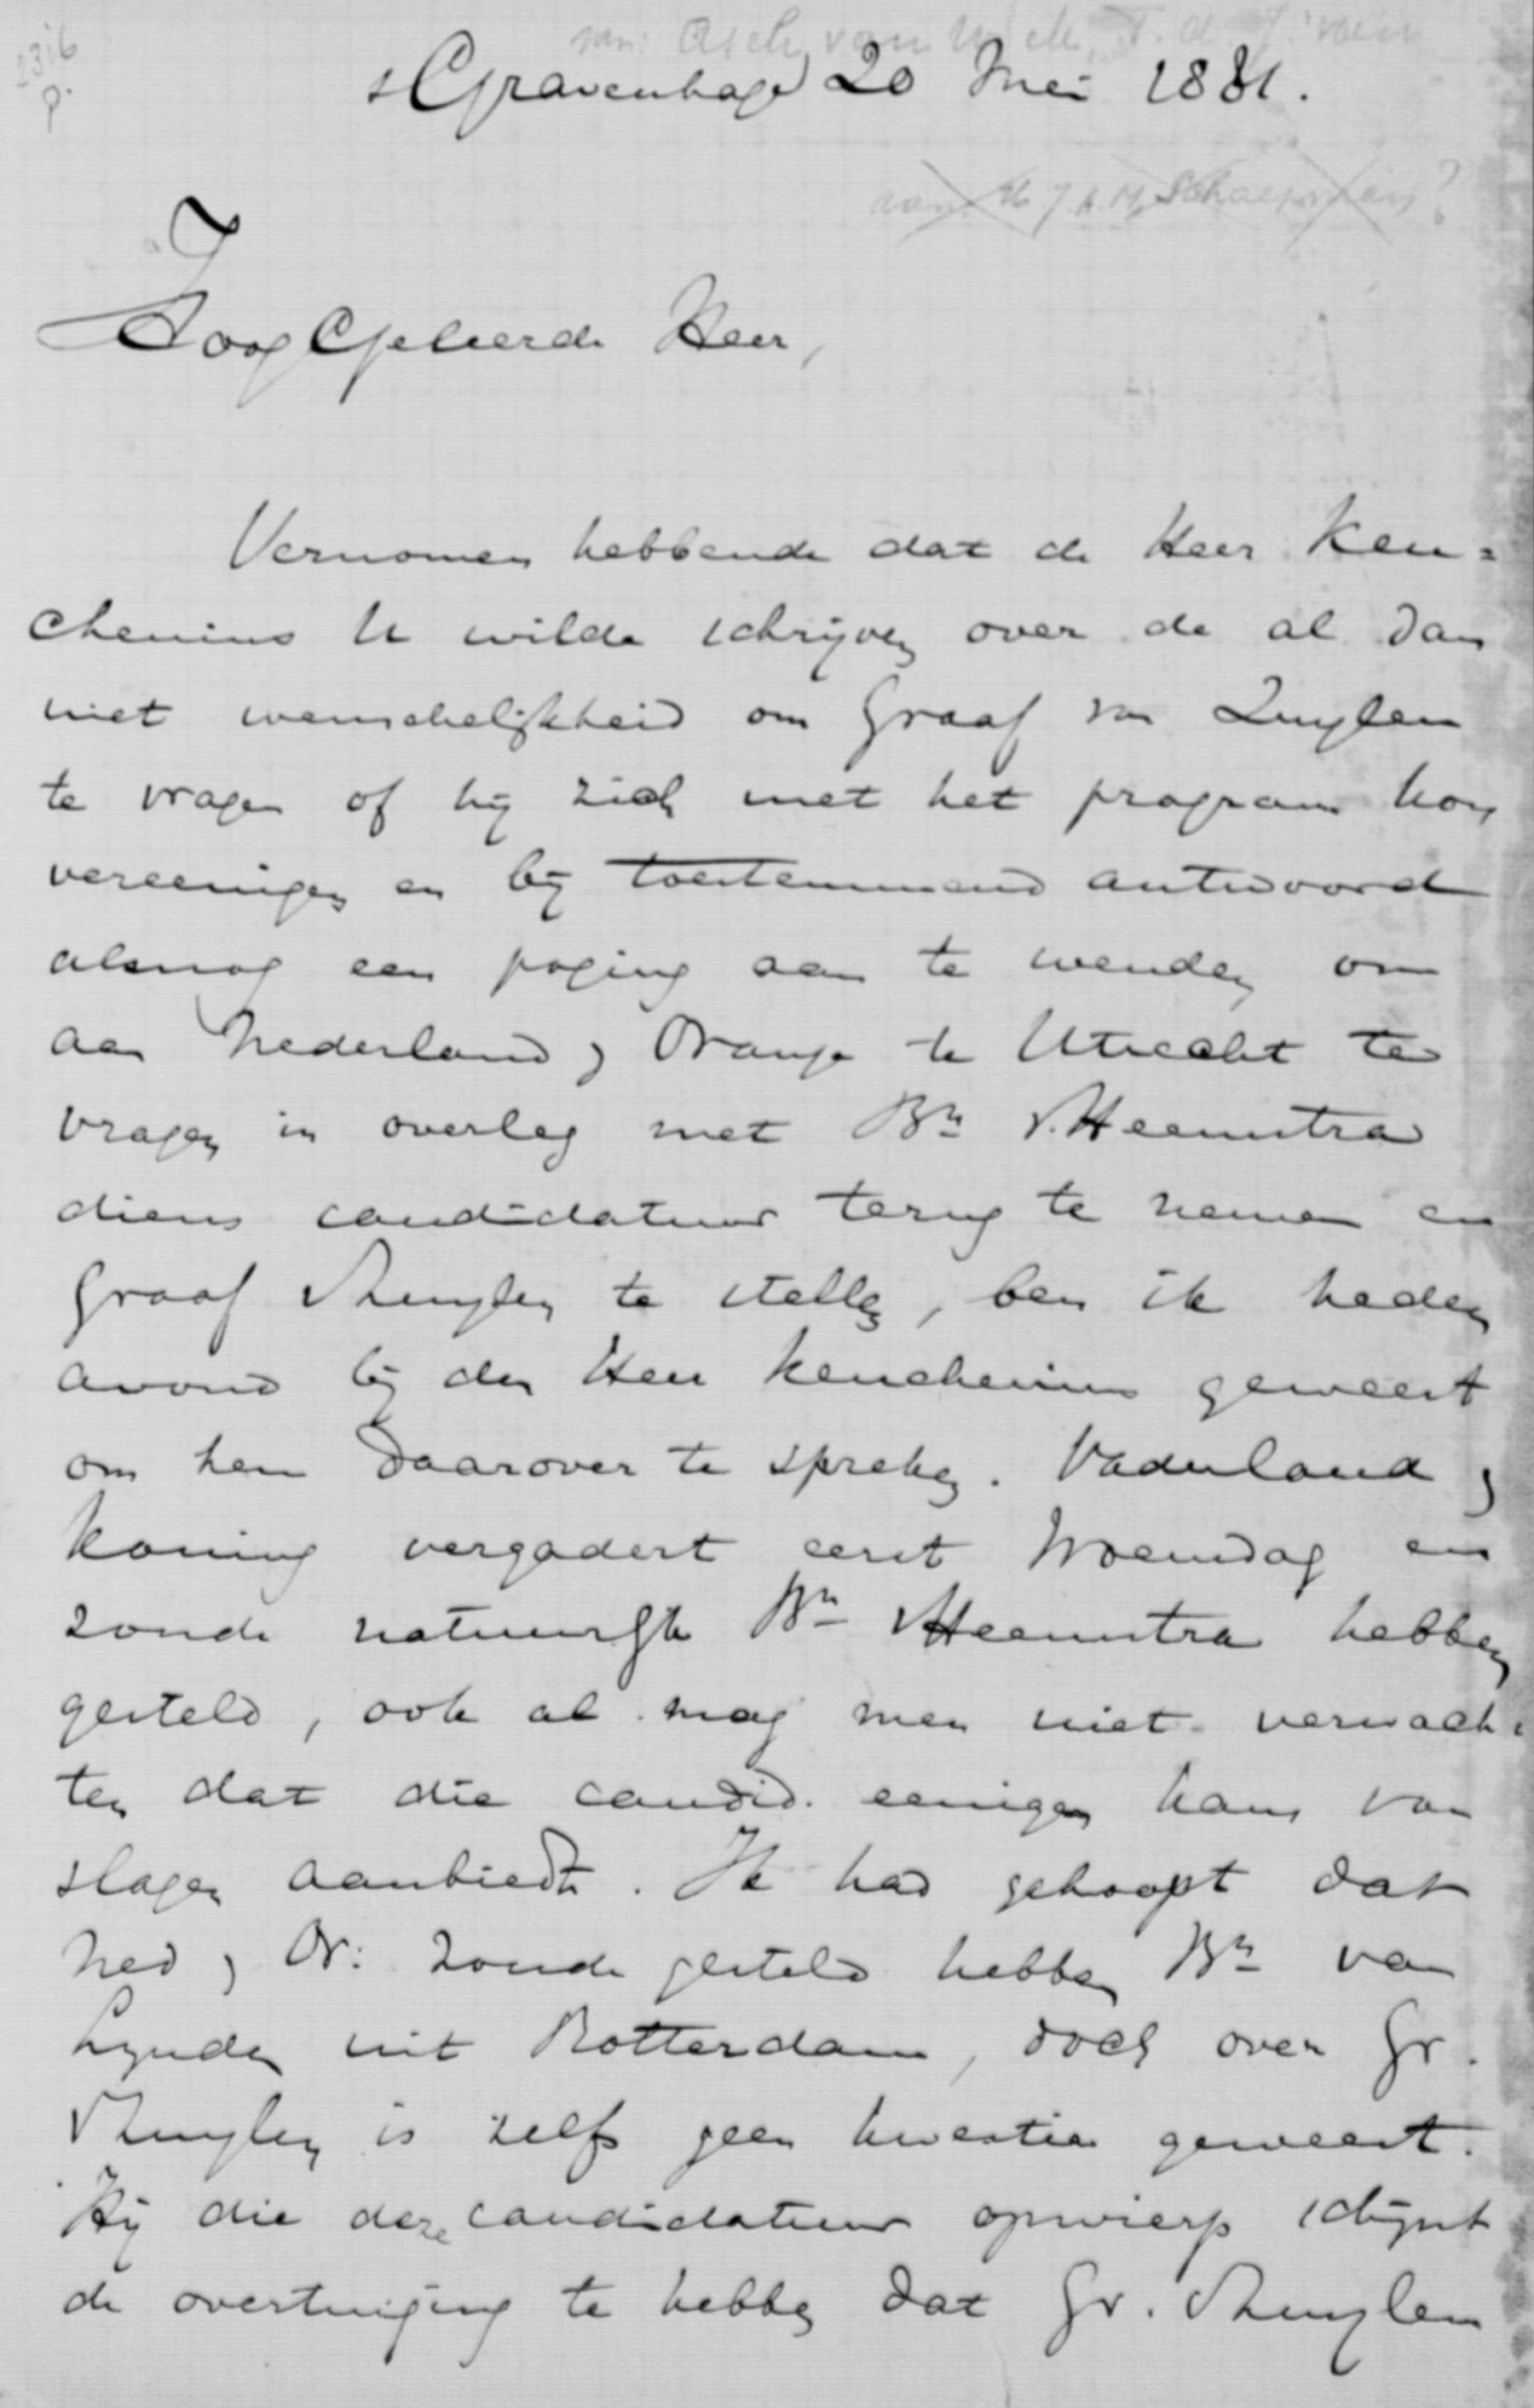 2316
p.
van: Asch van Wijck,
sGravenhage 20 Mei 1881.
aan Dr J.A.M. Schaepman?
HoogGeleerde Heer,
Vernomen hebbende dat de Heer Keu=
chenius U wilde schrijven over de al dan
niet wenschelijkheid om Graaf van Zuylen
te vragen of hij zich met het program kon
vereenigen en bij toestemmend antwoord
alsnog een poging aan te wenden om
aan Nederland & Oranje te Utrecht te
vragen in overleg met Bn v.Heemstra
diens candidatuur terug te nemen en
Graaf vZuylen te stellen, ben ik heden
avond bij den Heer Keuchenius geweest
om hem daarover te spreken. Vaderland &
Koning vergadert eerst Woensdag en
zoude natuurlijk Bn vHeemstra hebben
gesteld, ook al mag men niet verwach=
ten dat die candid. eenigen kans van
slagen aanbiedt. Ik had gehoopt dat
Ned & Or: zoude gesteld hebben Bn van
Lynden uit Rotterdam, doch over Gr.
vZuylen is zelfs geen kwestie geweest.
Hij die deze candidatuur opwierp schijnt
de overtuiging te hebben dat Gr. vZuylen